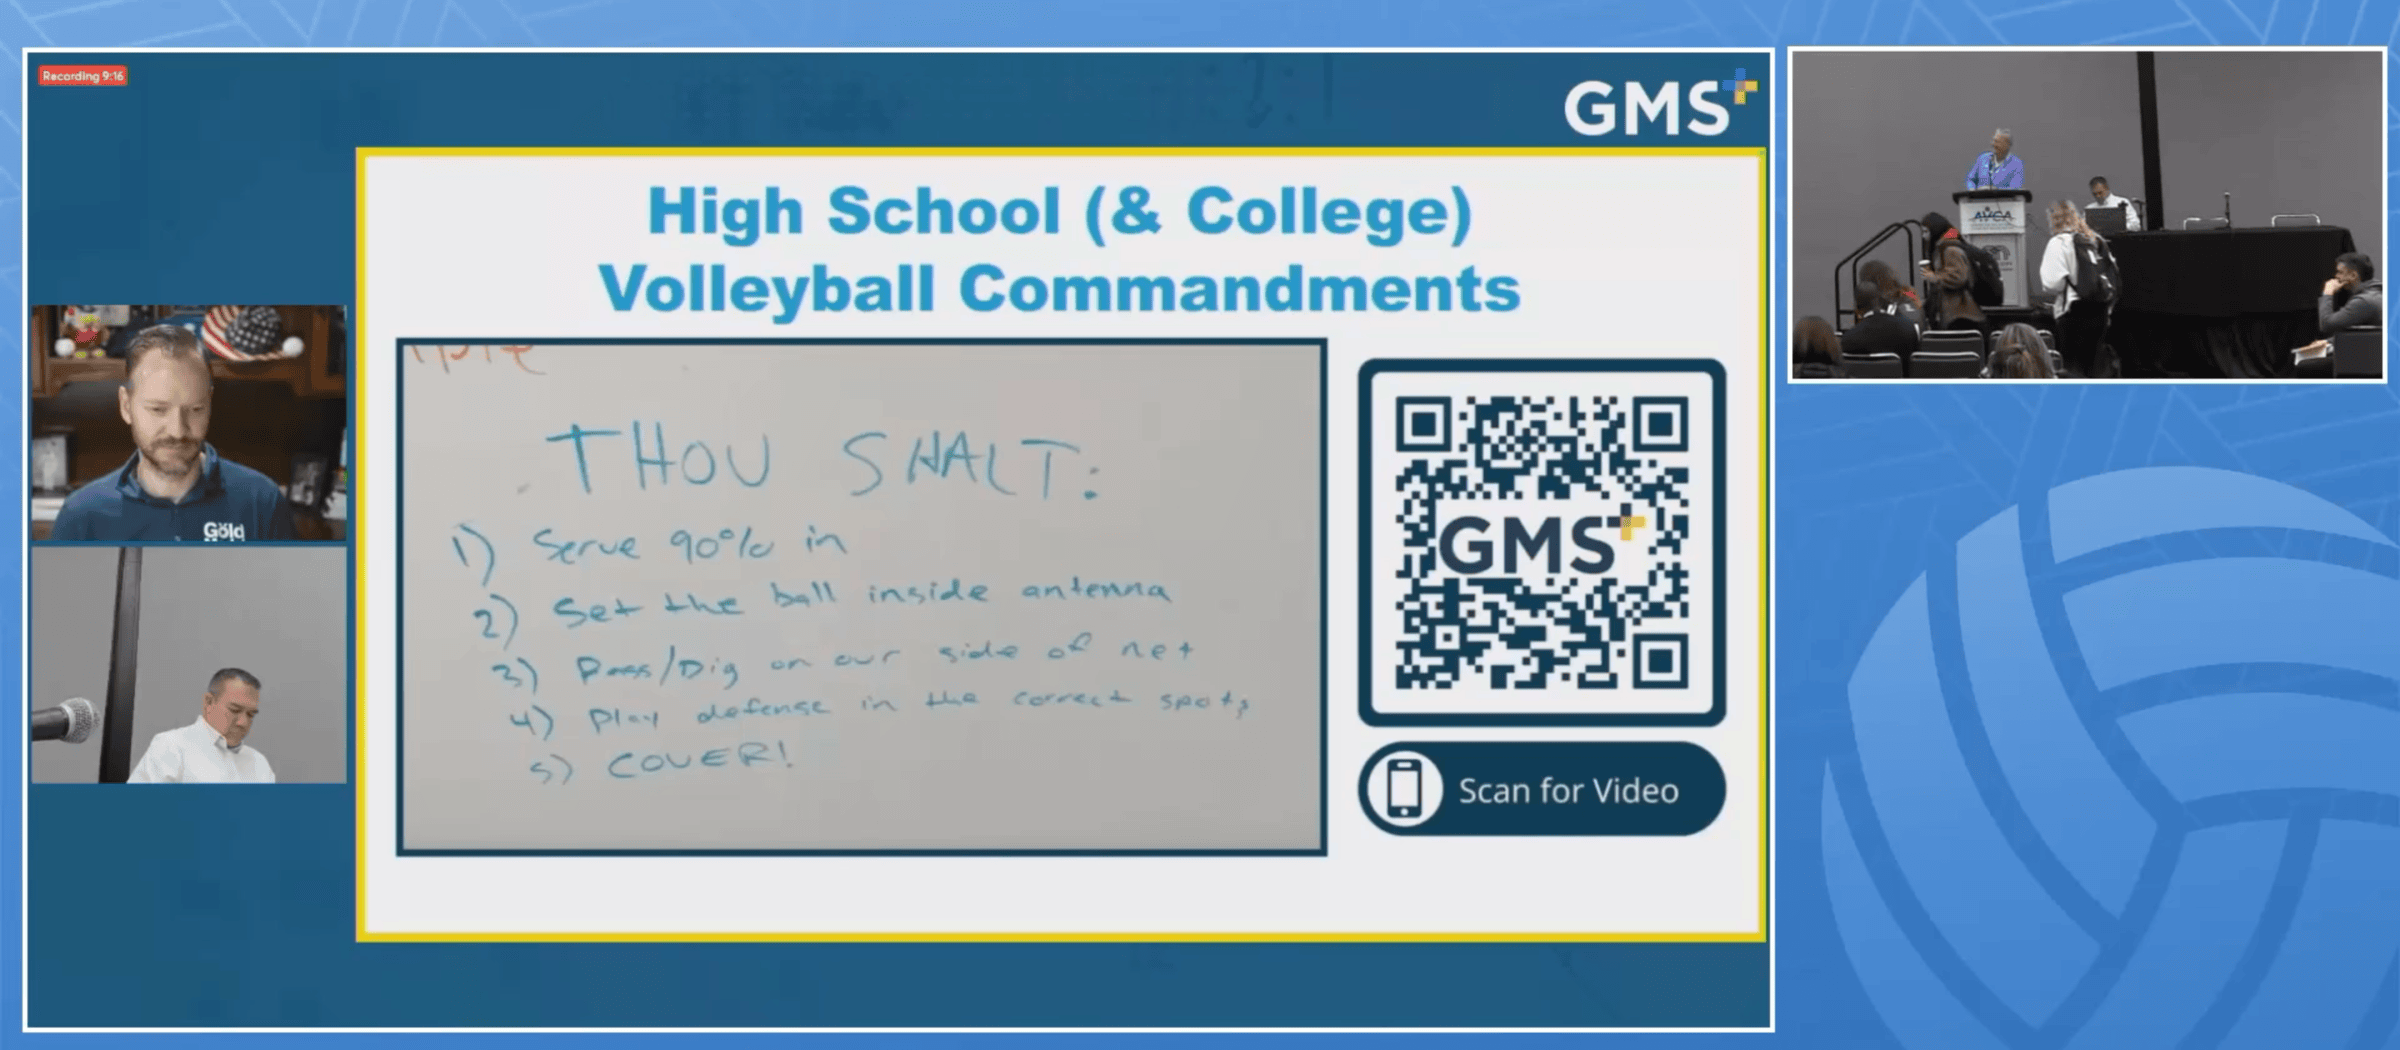 Recording 9:16
GMS+
High School (& College)
Volleyball Commandments
THOU SHALT:
1) Serve 90% in
2) Set the ball inside antenna
3) Pass/Dig on our side of net
4) Play defense in the correct spots
5) COVER!
GMS+
Scan for Video
Gold
AVCA